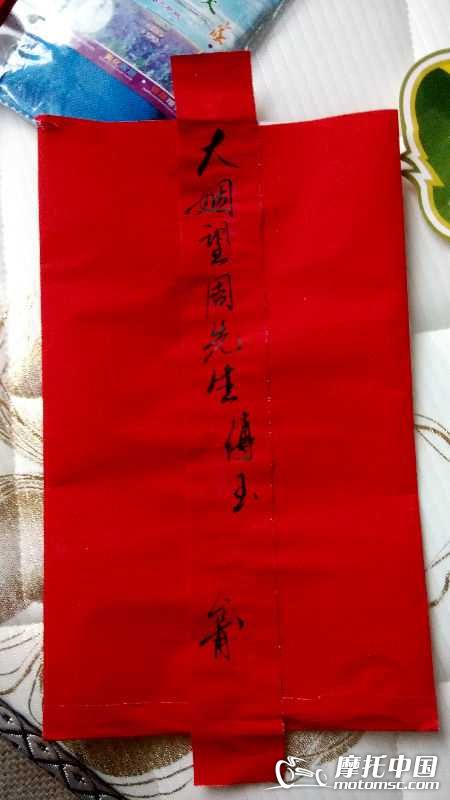 大姻望周先生傳玉
摩托中国
motomsc.com